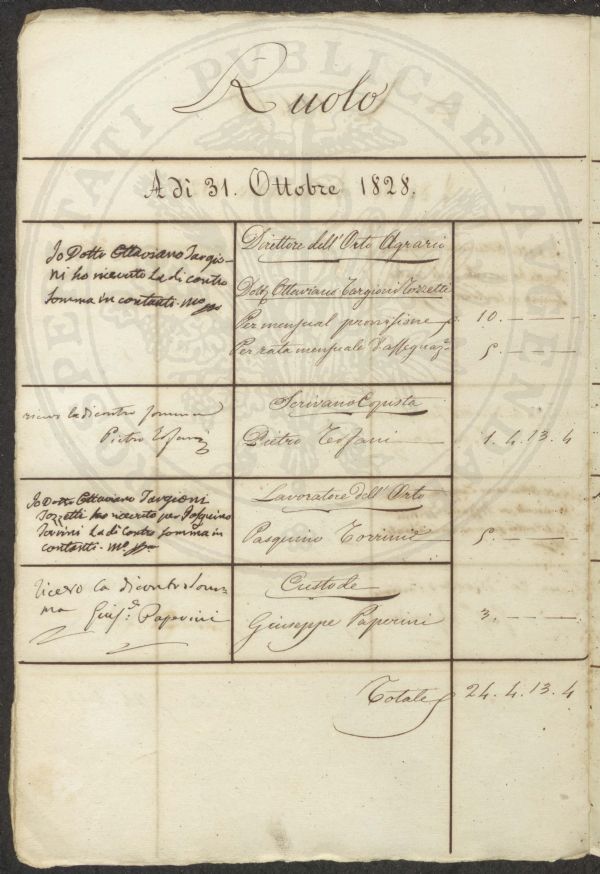 Ruolo
A dì 31. Ottobre 1828.
Io Dotto Ottaviano Targio-
ni ho ricevuto la di contro
somma in contanti M° ppo
Direttore dell'Orto Agrario
Dott. Ottaviano Targioni Tozzetti
Per mensual provvisione 10. — —
Per rata mensuale d'assegnaz.e 5. — —
ricevo la di contro somma
Pietro Tofani
Scrivano Copista
Pietro Tofani 1. 4. 13. 4
Io Dotto Ottaviano Targioni
Tozzetti ho ricevuto per Pasquino
Torrini la di contro somma in
contanti. M° ppo
Lavoratore dell'Orto
Pasquino Torrini 5. — —
Ricevo la di contro Som-
ma Gius.e Paperini
Custode
Giuseppe Paperini 3. — —
Totale 24. 4. 13. 4